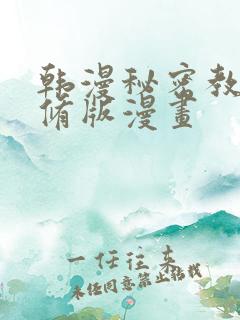 韩漫秘密教
脩版漫畫
一任往来
未经同意禁止转载